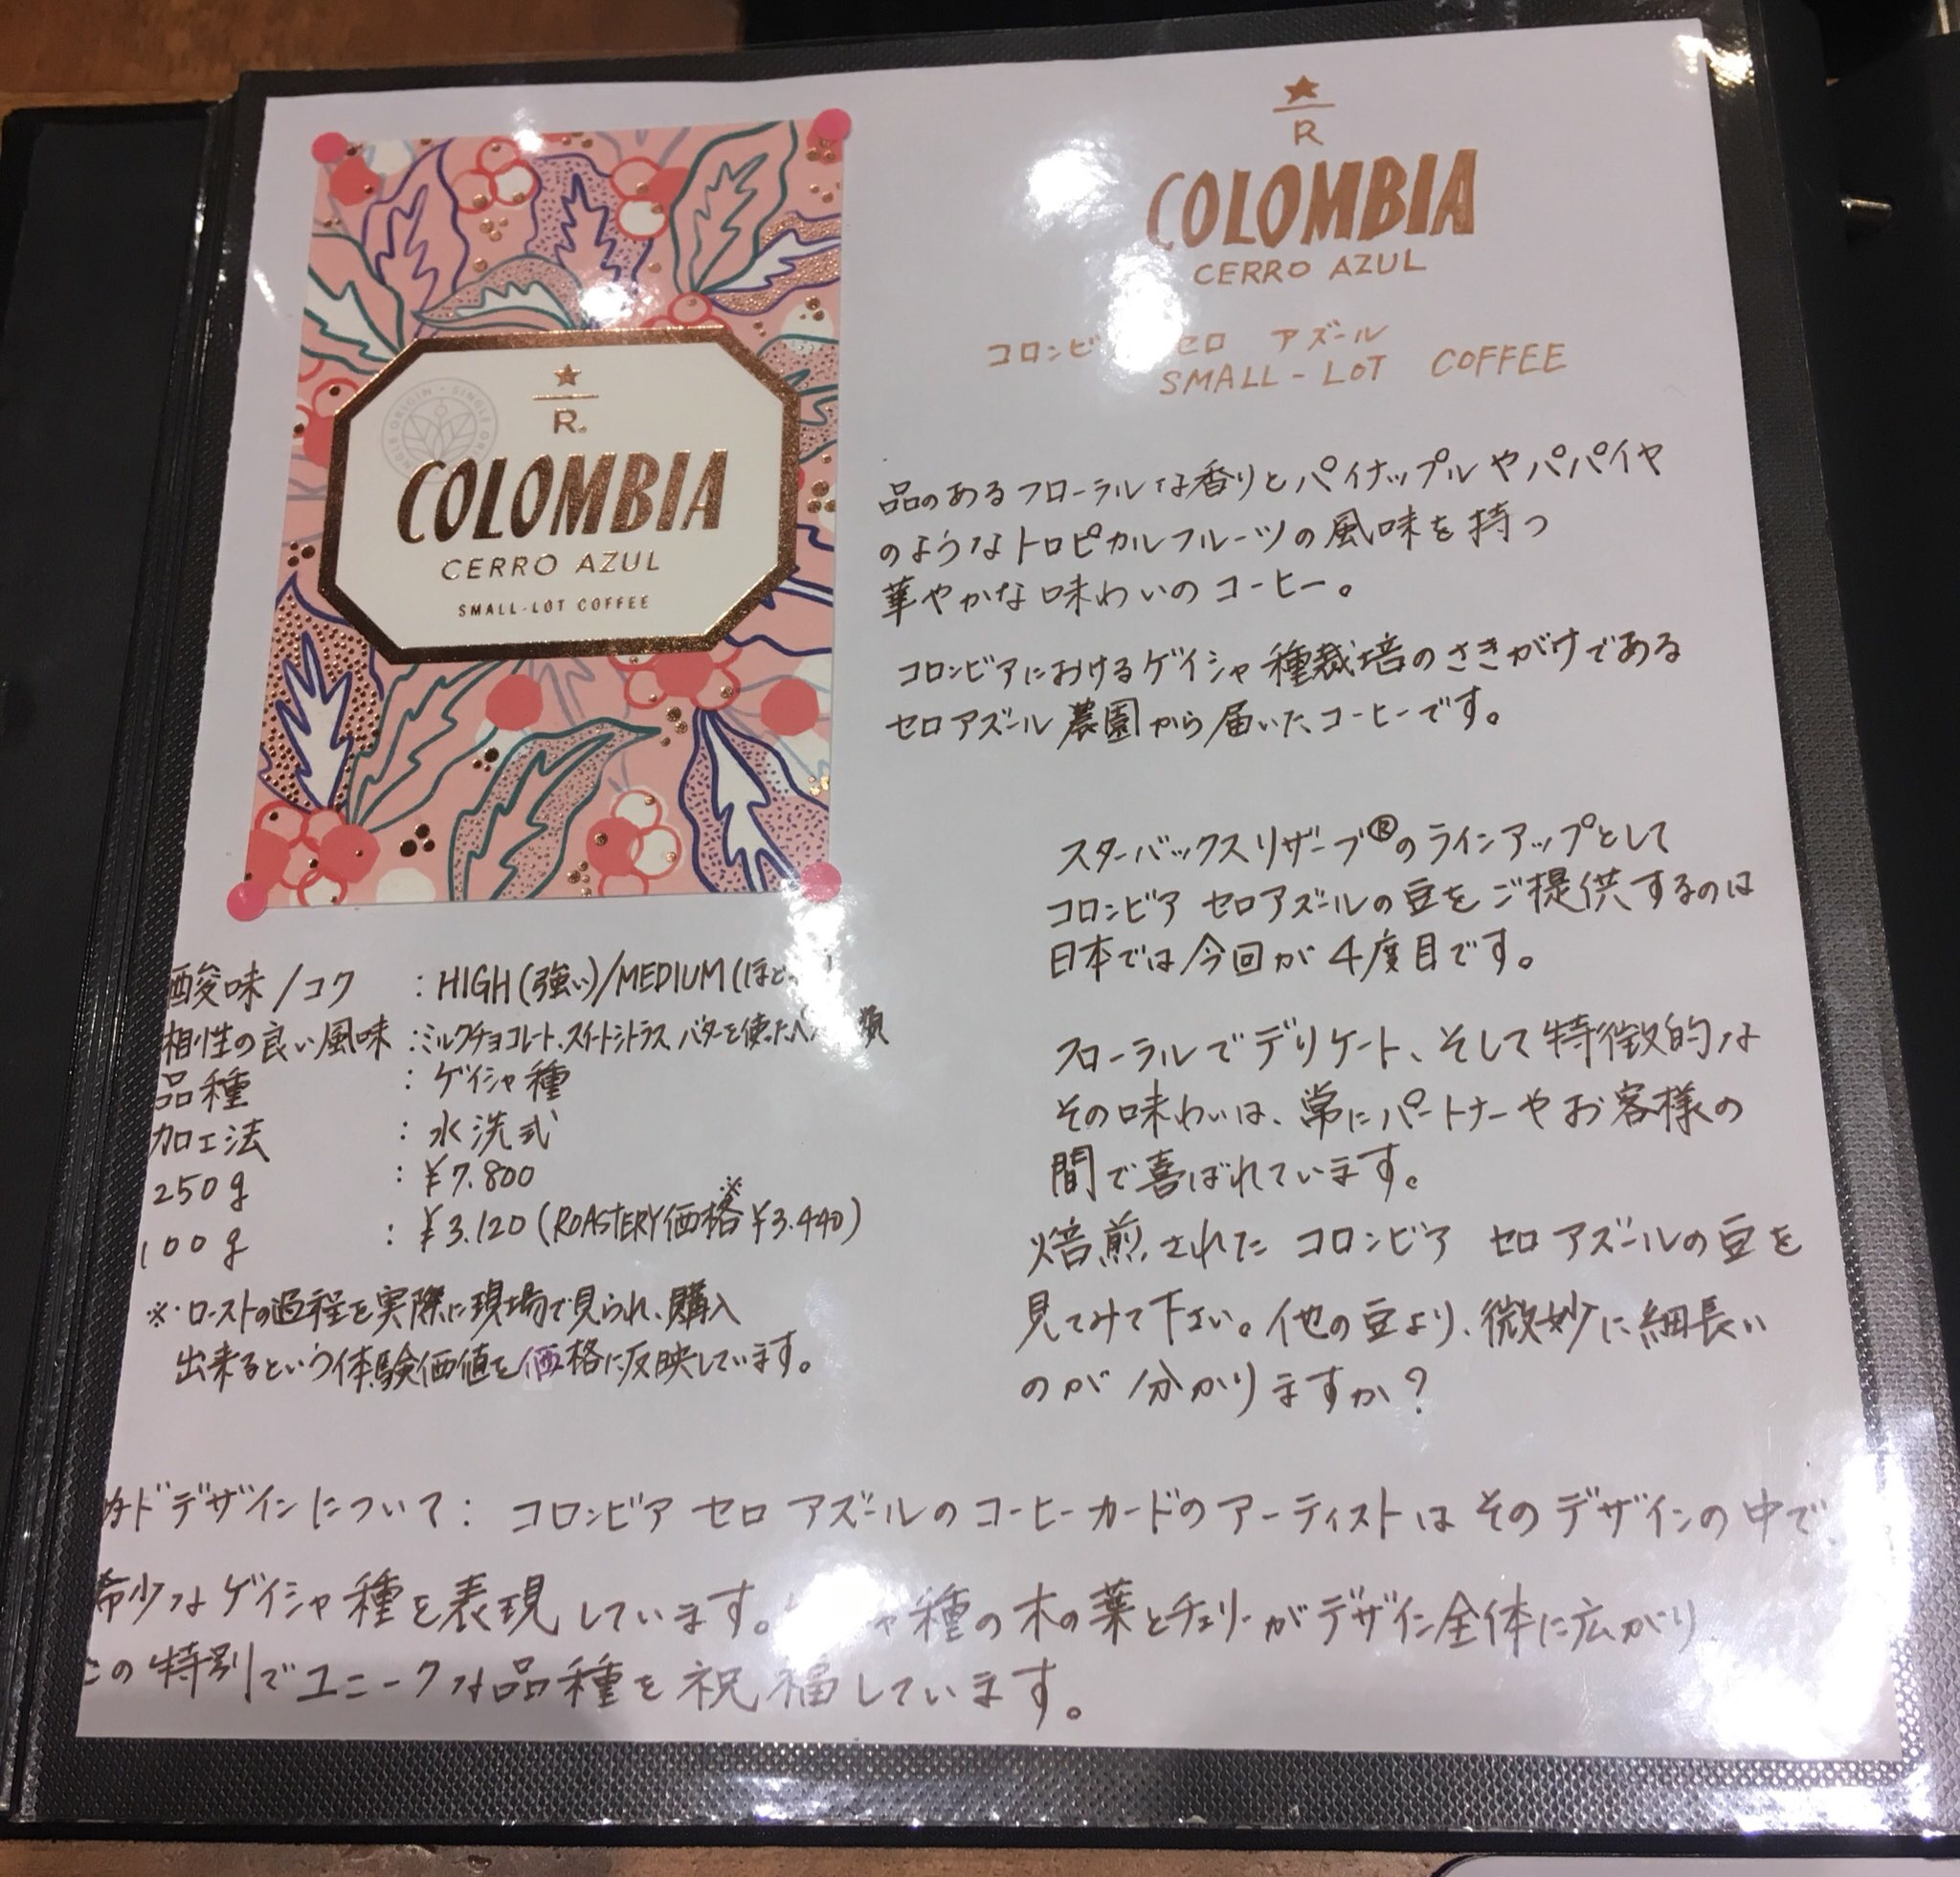 ★
R
COLOMBIA
CERRO AZUL
コロンビ セロ アズール
SMALL-LOT COFFEE
SINGLE ORIGIN · SINGLE
★
R.
COLOMBIA
CERRO AZUL
SMALL-LOT COFFEE
品のあるフローラルな香りとパイナップルやパパイヤ
のようなトロピカルフルーツの風味を持つ
華やかな味わいのコーヒー。
コロンビアにおけるゲイシャ種栽培のさきがけである
セロアズール農園から届いたコーヒーです。
スターバックスリザーブ®のラインアップとして
コロンビア セロアズールの豆をご提供するのは
日本では今回が4度目です。
フローラルでデリケート、そして特徴的な
その味わいは、常にパートナーやお客様の
間で喜ばれています。
焙煎されたコロンビア セロアズールの豆を
見てみて下さい。他の豆より、微妙に細長い
のが分かりますか?
酸味/コク :HIGH(強い)/MEDIUM(ほど
相性の良い風味:ミルクチョコレート、スイートシトラス、バターを使った 類
品種 :ゲイシャ種
加工法 :水洗式
250g :¥7.800
100g :¥3.120(ROASTERY価格※¥3.440)
※・ローストの過程を実際に現場で見られ、購入
出来るという体験価値を価格に反映しています。
カードデザインについて:コロンビア セロ アズールのコーヒーカードのアーティストはそのデザインの中で
希少なゲイシャ種を表現しています。 ャ種の木の葉とチェリーがデザイン全体に広がり
この特別でユニークな品種を祝福しています。